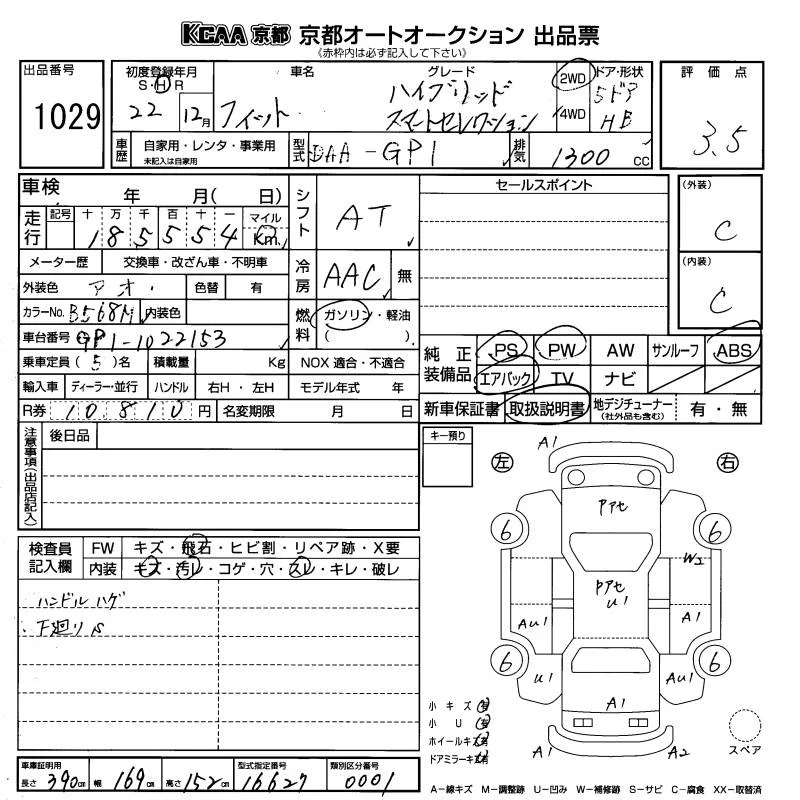 KCAA 京都 京都オートオークション 出品票
(赤枠内は必ず記入して下さい)
出品番号 1029
初度登録年月 S・H・R 22年 12月
車名 フィット
グレード ハイブリッド スマートセレクション
2WD 4WD
ドア・形状 5ドア HB
評価点 3.5
車歴 自家用・レンタ・事業用 未記入は自家用
型式 DAA-GP1
排気 1300 CC
車検 年 月( 日)
シフト AT
セールスポイント
(外装) C
(内装) C
走行 記号 十 万 千 百 十 一 マイル Km
185554
メーター歴 交換車・改ざん車・不明車
冷房 AAC 無
外装色 アオ 色替 有
カラーNo. B568M 内装色
燃料 ガソリン・軽油 ( )
車台番号 GP1-1022153
乗車定員 (5)名 積載量 Kg NOX 適合・不適合
純正装備品 PS PW AW サンルーフ ABS
エアバック TV ナビ
輸入車 ディーラー・並行 ハンドル 右H・左H モデル年式 年
R券 10810円 名変期限 月 日
新車保証書 取扱説明書 地デジチューナー (社外品も含む) 有・無
注意事項(出品店記入) 後日品
キー預り
左 右
A1
6 6
Pアセ
W2
Pアセ
U1
AU1 A1
6 6
U1 AU1
A1
A1 A2
スペア
検査員記入欄 FW キズ・飛石・ヒビ割・リペア跡・X要
内装 キズ・汚レ・コゲ・穴・スレ・キレ・破レ
ハンドルハゲ
下廻りS
小キズ 有
小 U 有
ホイールキズ 有
ドアミラーキズ 有
車庫証明用 長さ 390cm 幅 169cm 高さ 152cm
型式指定番号 16627
類別区分番号 0001
A-線キズ M-調整跡 U-凹み W-補修跡 S-サビ C-腐食 XX-取替済